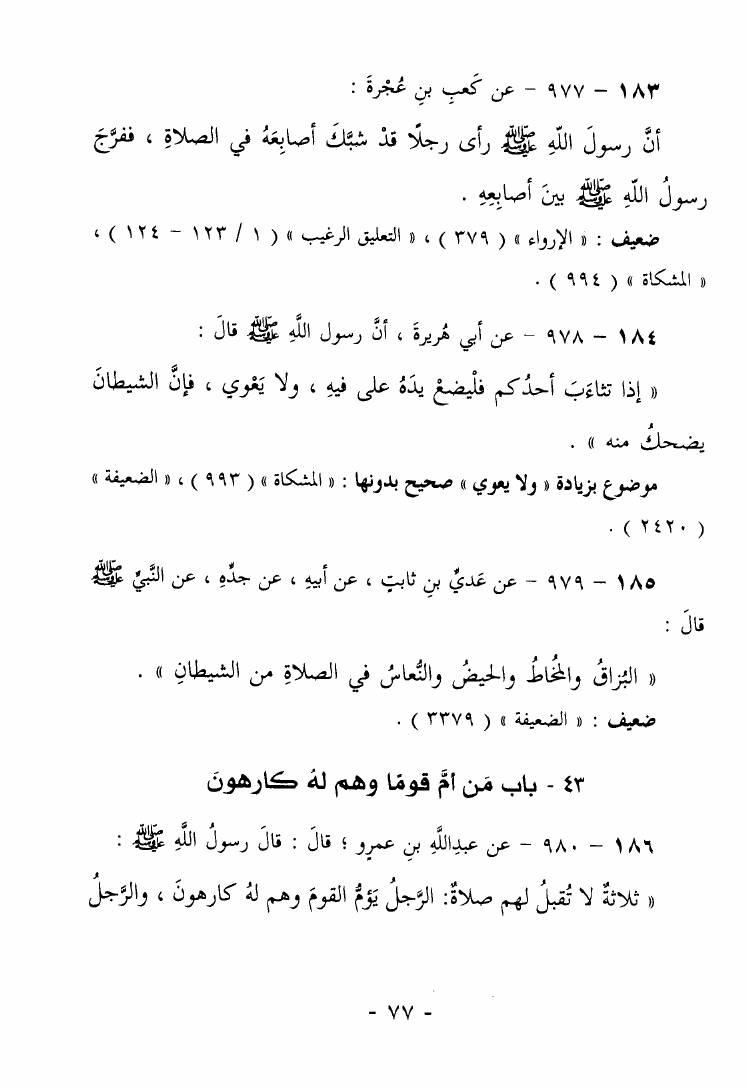 ١٨٣ – ٩٧٧ – عن كَعبِ بنِ عُجْرةَ :
أنَّ رسولَ اللّهِ ﷺ رأى رجلًا قدْ شبَّكَ أصابِعَهُ في الصلاةِ ، ففرَّجَ
رسولُ اللّهِ ﷺ بينَ أصابِعِهِ .
ضعيف : « الإرواء » ( ٣٧٩ ) ، « التعليق الرغيب » ( ١ / ١٢٣ – ١٢٤ ) ،
« المشكاة » ( ٩٩٤ ) .
١٨٤ – ٩٧٨ – عن أبي هُريرةَ ، أنَّ رسول اللَّهِ ﷺ قالَ :
« إذا تثاءَبَ أحدُكم فلْيضعْ يدَهُ على فيهِ ، ولا يَعْوي ، فإنَّ الشيطانَ
يضحكُ منه » .
موضوع بزيادة « ولا يعوي » صحيح بدونها : « المشكاة » ( ٩٩٣ ) ، « الضعيفة »
( ٢٤٢٠ ) .
١٨٥ – ٩٧٩ – عن عَديِّ بنِ ثابتٍ ، عن أبيهِ ، عن جدِّهِ ، عن النَّبيِّ ﷺ
قالَ :
« البُزاقُ والمُخاطُ والحيضُ والنُّعاسُ في الصلاةِ من الشيطانِ » .
ضعيف : « الضعيفة » ( ٣٣٧٩ ) .
٤٣ - باب مَن أمَّ قومًا وهم لهُ كارهونَ
١٨٦ – ٩٨٠ – عن عبدِاللَّهِ بنِ عمرٍو ؛ قالَ : قالَ رسولُ اللَّهِ ﷺ :
« ثلاثةٌ لا تُقبلُ لهم صلاةٌ: الرَّجلُ يَؤمُّ القومَ وهم لهُ كارهونَ ، والرَّجلُ
- ٧٧ -